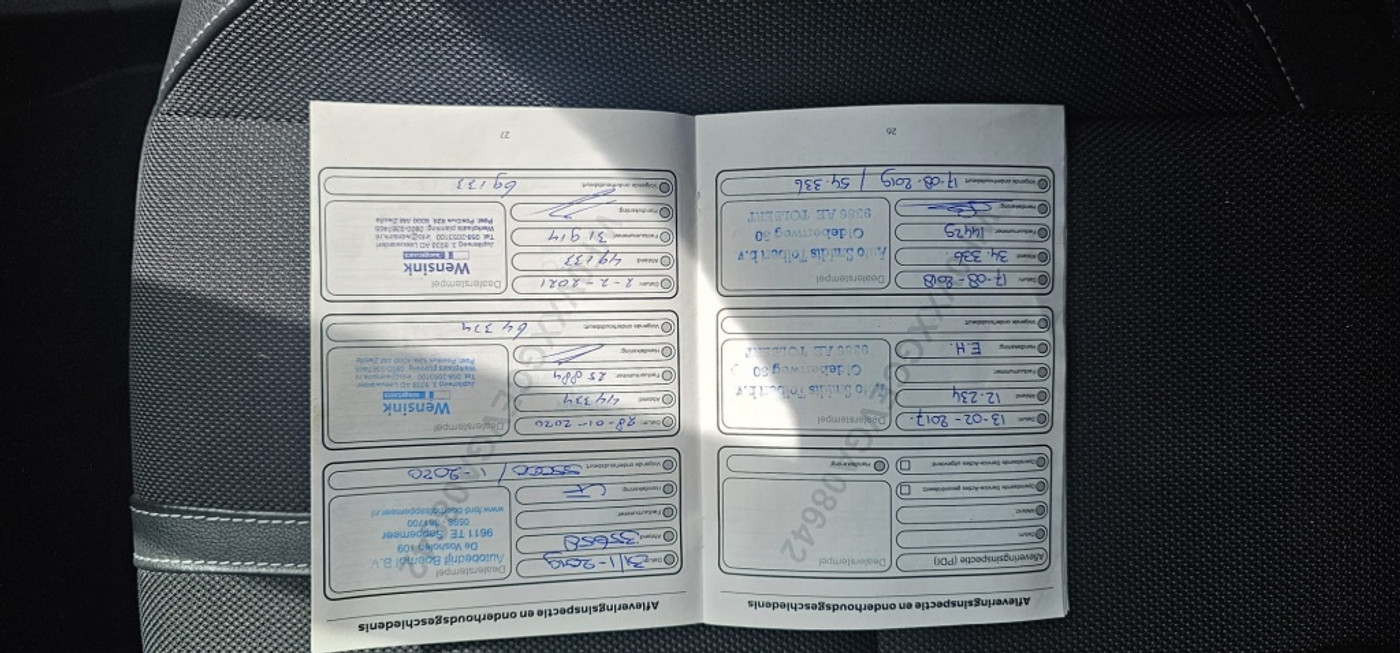 Afleveringsinspectie en onderhoudsgeschiedenis
Afleveringsinspectie (PDI)
Datum:
Afstand:
Openstaande Service-Acties gecontroleerd:
Openstaande Service-Acties uitgevoerd:
Handtekening:
Dealerstempel
Datum: 13-02-2017
Afstand: 12.234
Factuurnummer:
Handtekening: E.H.
Volgende onderhoudsbeurt:
Dealerstempel
Auto Smidts Tolbert b.v.
Oldebertweg 30
9356 AE TOLBERT
Datum: 17-08-2018
Afstand: 34.336
Factuurnummer: 14429
Handtekening:
Volgende onderhoudsbeurt: 17-08-2019 / 54.336
Dealerstempel
Auto Smidts Tolbert b.v.
Oldebertweg 30
9356 AE TOLBERT
26
Afleveringsinspectie en onderhoudsgeschiedenis
Datum: 31/1-2019
Afstand: 35650
Factuurnummer:
Handtekening:
Volgende onderhoudsbeurt: 55000 / 1-2020
Dealerstempel
Autobedrijf Boerma B.V.
De Vosholen 109
9611 TE Sappemeer
Datum: 28-01-2020
Afstand: 44374
Factuurnummer: 25884
Handtekening:
Volgende onderhoudsbeurt: 64374
Dealerstempel
Wensink
Jupiterweg 3, 8938 AD Leeuwarden
Tel. 058-2053100
Datum: 2-2-2021
Afstand: 49133
Factuurnummer: 31914
Handtekening:
Volgende onderhoudsbeurt: 69133
Dealerstempel
Wensink
Jupiterweg 3, 8938 AD Leeuwarden
Tel. 058-2053100 info@wensink.nl
27